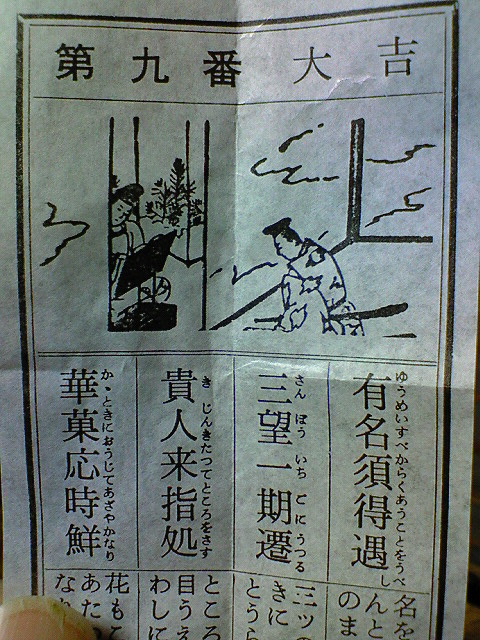 第九番大吉
有名須得遇
ゆうめいすべからくあうことをうべし
三望一期遷
さんぼういちごにうつる
貴人来指処
きじんきたつてところをさす
華菓応時鮮
かゝときにおうじてあざやかなり
名を
んと
のま
三ツの
きに
とうら
ところ
目うえ
わしに
花もこ
あた
なり